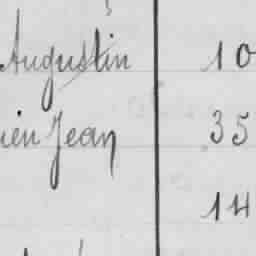 Augustin 10
ien Jean 35
14